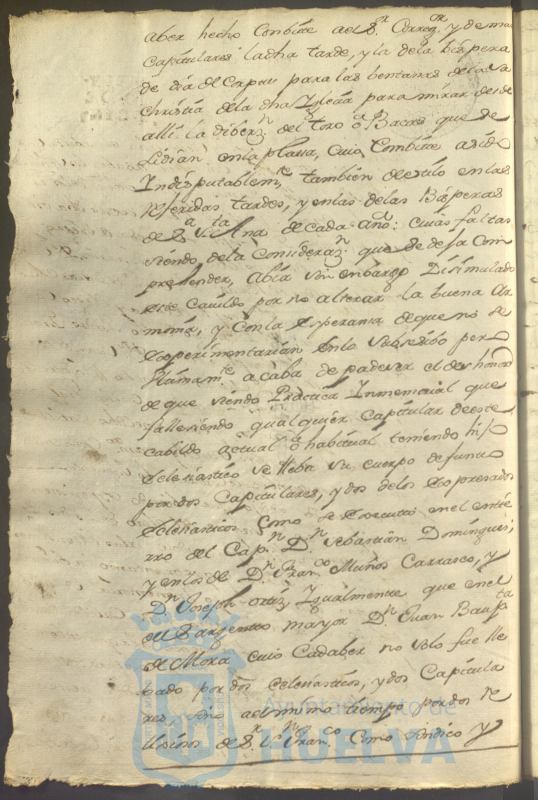 aber hecho Combite ael S.r Correg.or y demas
Capitulares ladha tarde, y la dela bispera
de dia de Corpus para las bentanas dela Sa
Christia dela dha Iglesia para mirar desde
alli la diberz.n del toro ô Bacas que se
Lidian en la plasa, cuio Combite asido
Indisputablem.te tambien de estilo en las
referidas tardes, y en las delas Bisperas
de S.a S.ta Ana de cada año: cuias faltas
siendo dela Consideraz.n que se deja Com
prehender, abia sin embargo Disimulado
este Cavildo por no alterar la buena ar
monia, y Con la Esperansa de que no se
Experimentarian en lo subsesibo per
ultimam.te acaba de padeser el des honor
de que siendo Practica Inmemorial que
fallesiendo qualquier Capitular de este
Cabildo actual ô habitual teniendo hijo
Eclesiastico se lleba su cuerpo defunto
por dos Capitulares, y dos delos Expresados
Eclesiasticos Como se Executò en el entie
rro del Cap.n D.n Sebastian Domingues;
y en los de D.n Fran.co Muños Carrasco, y
D.n Joseph Ortiz Igualmente que en el
del Sargento mayor D.n Juan Baup.ta
de Mora Cuio Cadaber no solo fue lle
bado por dos Eclesiasticos, y dos Capitula
res, sino ael mismo tiempo por dos Re
lixiosos de S.r S.n Fran.co Como Sindico y
Ayuntamiento de
HUELVA